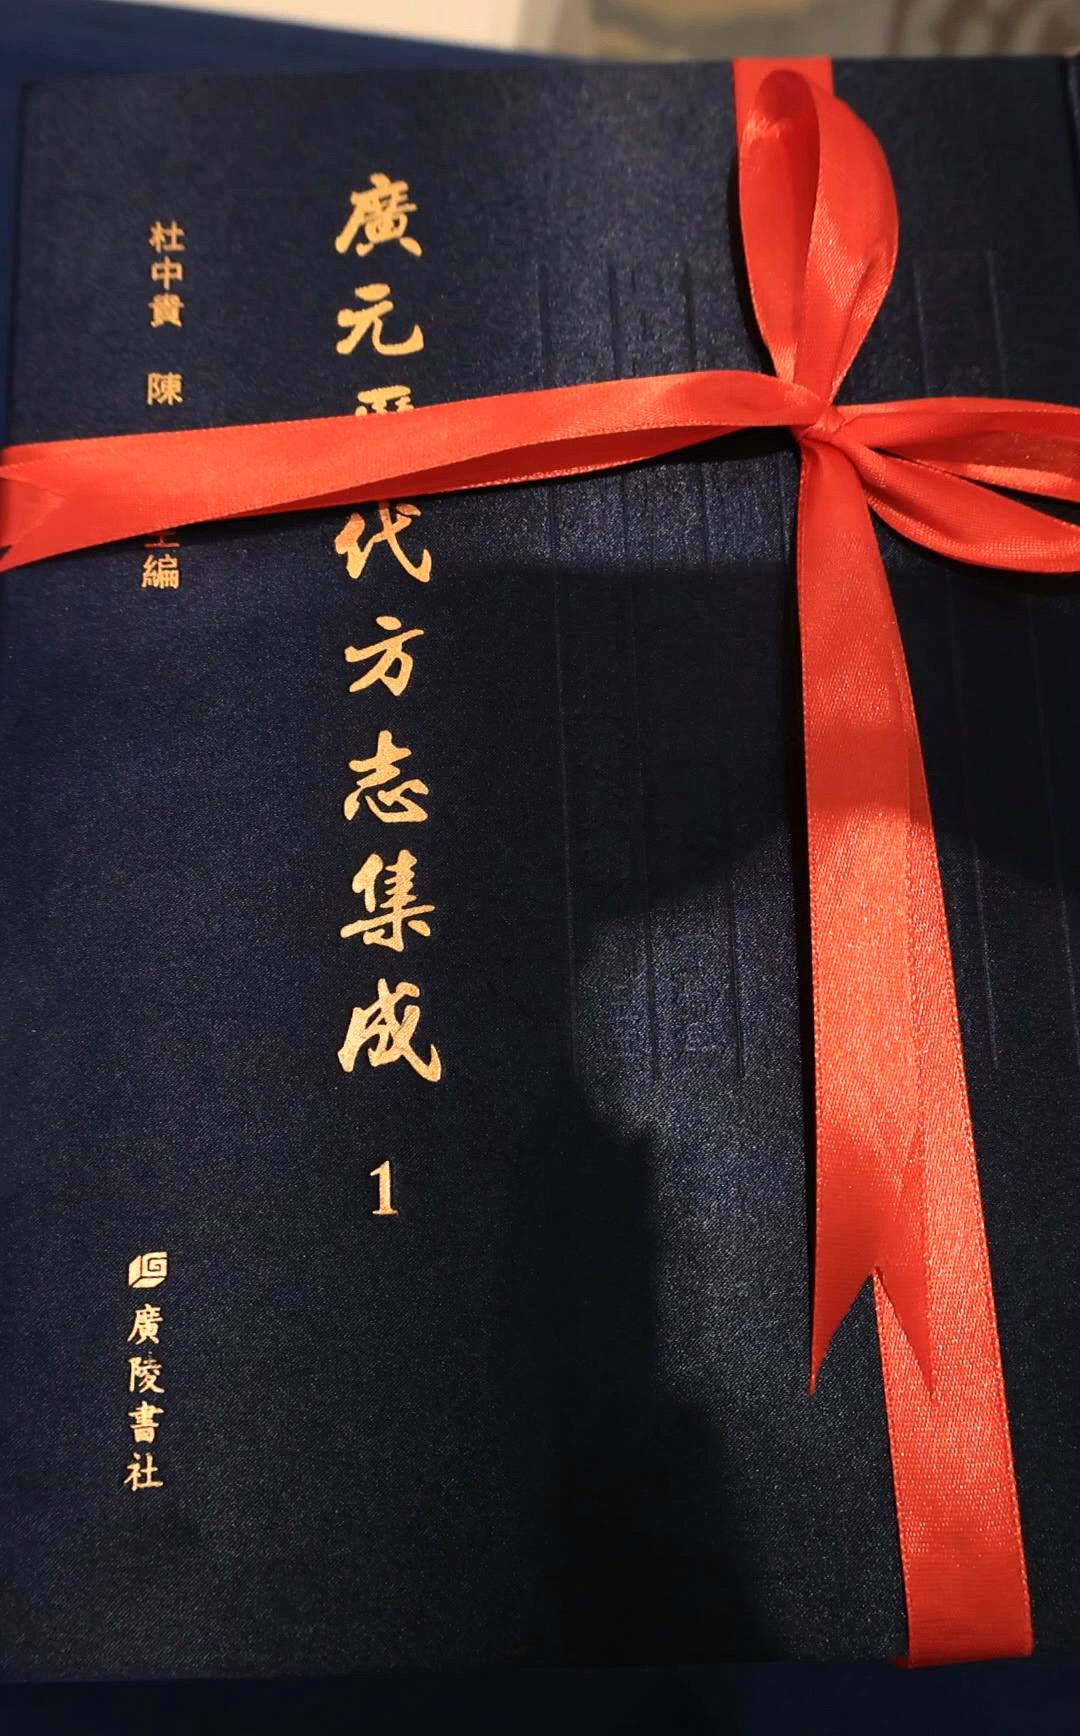 廣元歷代方志集成 1
杜中貴 陳
主編
廣陵書社